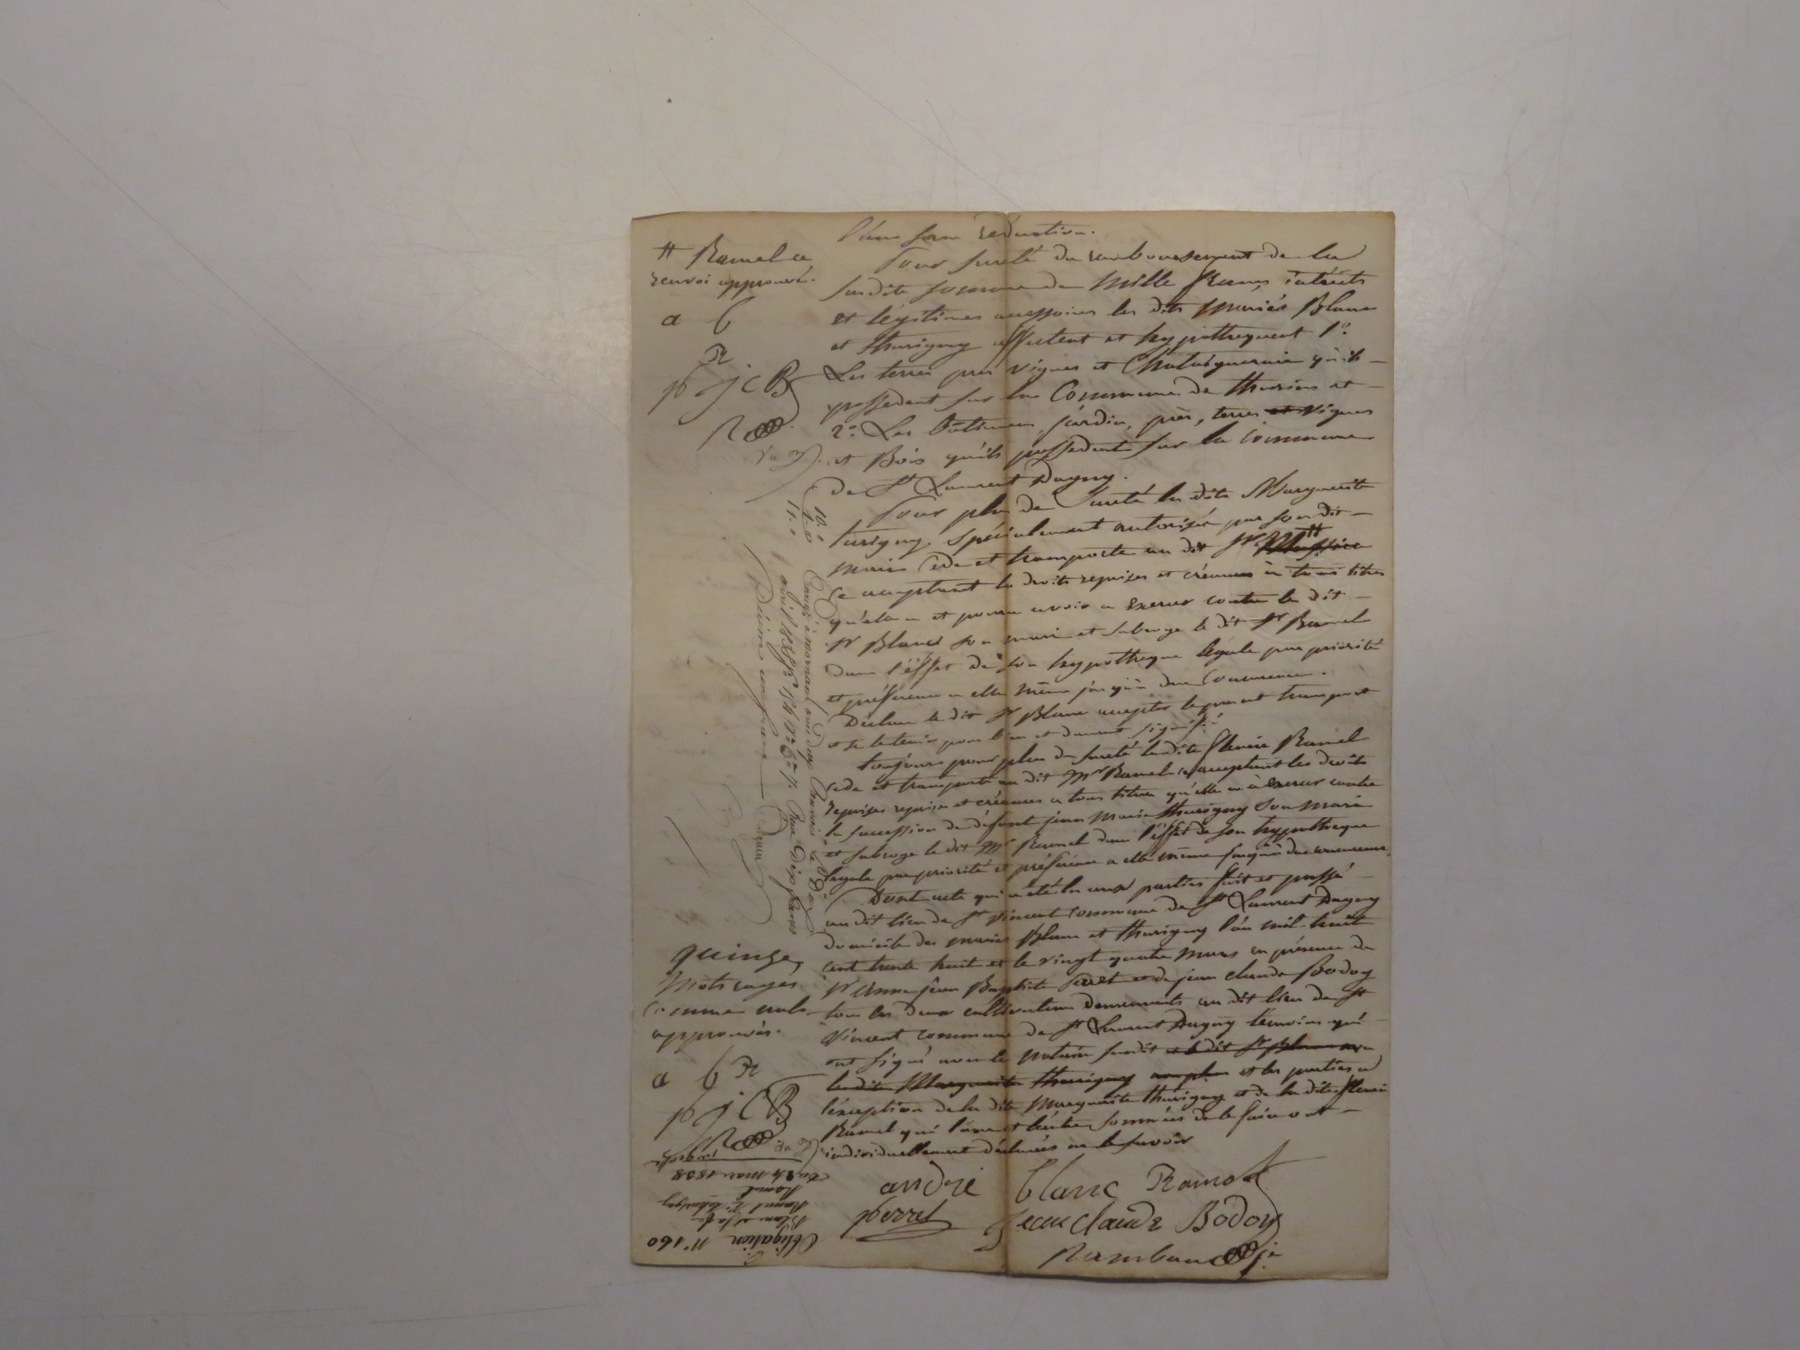 l'an sans réduction.
Pour sureté du remboursement de la
susdite somme de mille francs intérêts
et légitimes accessoires les dits mariés Blanc
et thurigny affectent et hypothèquent 1o.
Les terres près vignes et Chataigneraie qu'ils
possedent sur la Commune de thurins et
2o. Les bâtimens, jardin, près, terres et vignes
et Bois qu'ils possedent sur la Commune
de St Laurent Dagny.
Pour plus de sureté la dite Marguerite
turigny, spécialement autorisée par son dit
mari Cède et transporte au dit Sr #
ce acceptant les droits reprises et créances à tous titres
qu'elle a et pourra avoir a exercer contre le dit
Sr Blanc son mari et subroge le dit Sr Ramel
dans l'effet de son hypothèque légale par priorité
et préférence a elle même jusqu'à due Concurrence.
Déclare le dit Sr Blanc accepter le présent transport
et se le tenir pour bien et dument signifié
toujours pour plus de sureté la dite fleurie Ramel
cède et transporte au dit Mr Ramel ce acceptant les droits
reprises et créances a tous titres qu'elle a à exercer contre
la succession de défunt jean Marie thurigny son mari
et subroge le dit Mr Ramel dans l'effet de son hypothèque
légale par priorité et préférence a elle même jusqu'à due concurrence
Dont acte qui a été lu aux parties fait et passé
au dit lieu de St Vincent commune de St Laurent Dagny
domicile des mariés Blanc et thurigny l'an mil huit
cent trente huit et le vingt quatre mars en présence de
Sr Anne jean Baptiste et de jean claude Bodoy
tous les deux cultivateurs demeurants au dit lieu de St
Vincent commune de St Laurent Dagny temoins qui
ont signé avec le notaire susdit et le dit Sr Blanc
ladite Marguerite thurigny et les parties a
l'éxception de la dite Marguerite thurigny et de la dite fleurie
Ramel qui l'une et l'autre sommées de le faire ont
individuellement déclarées ne le savoir
andré blanc Ramel
perret jean claude Bodoy
Rambaud
# Ramel ce
renvoi approuvé.
a b
R
p j c B
R
Vu
10.
1.
11.
Enregé à mornant
avril 1838
Dix francs
Décime un franc
quinze
mots rayés
comme nuls
approuvés.
a b R
p j C B
R
Obligation No 160
Blanc et sa fe
Ramel Ve thurigny
Ramel
Du 24 mars 1838